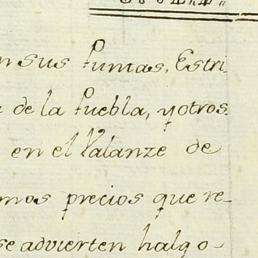 n sus Puntas, Estri
a de la Puebla, y otros
en el Valanze de
mos precios que re-
se advierten halgo